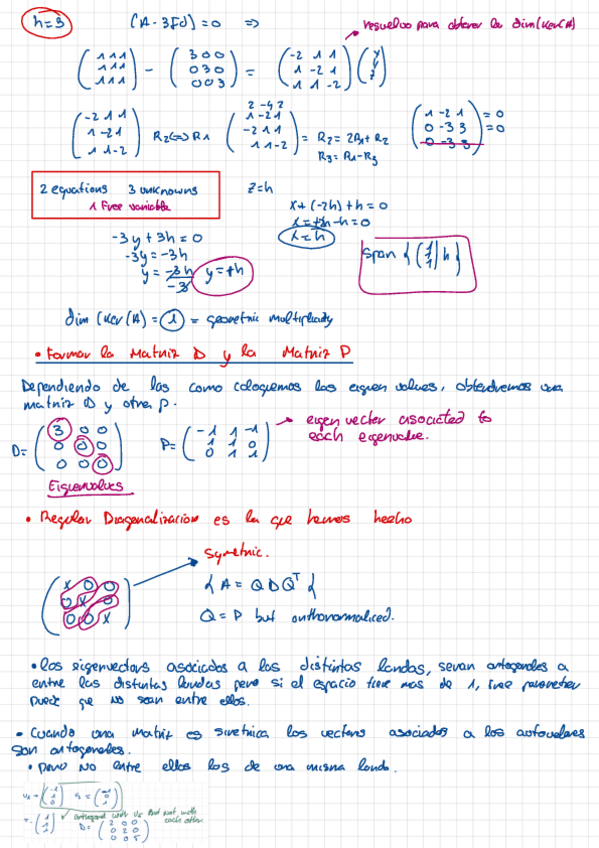 h=3 (A-3Id)=0 => resuelvo para obtener la dim(Ker(A)
(1 1 1 / 1 1 1 / 1 1 1) - (3 0 0 / 0 3 0 / 0 0 3) = (-2 1 1 / 1 -2 1 / 1 1 -2) (x / y / z)
2 -4 2
(-2 1 1 / 1 -2 1 / 1 1 -2) R2<=>R1 (1 -2 1 / -2 1 1 / 1 1 -2) = R2=2R1+R2 (1 -2 1 / 0 -3 3 / 0 -3 3) =0 =0
R3=R1-R3
2 equations 3 unknowns
1 Free variable
z=h
x+(-2h)+h=0
x=+2h-h=0
x=h
-3y+3h=0
-3y=-3h
y=-3h/-3 y=+h
span {(1 / 1 / 1) h}
dim (Ker(A)=1 = geometric multiplicity
• Formar la Matriz D y la Matriz P
Dependiendo de las como coloquemos los eigen values, obtendremos una
matriz D y otra P.
D= (3 0 0 / 0 0 0 / 0 0 0) P= (-1 1 -1 / 1 1 0 / 0 1 1) eigen vector associated to
each eigenvalue.
Eigenvalues
• Regular Diagonalizacion es la que hemos hecho
symetric.
(x 0 0 / 0 x 0 / 0 0 x) { A=QDQᵀ {
Q=P but orthonormaliced.
• los eigenvectors asociados a las distintas landas, seran ortogonales a
entre las distintas landas pero si el espacio tiene mas de 1, free parameter
puede qe no sean entre ellos.
• Cuando una matriz es simetrica los vectores asociados a los autovalores
son ortogonales.
• pero no entre ellos los de una misma landa.
(-1 / 1 / 0) (-1 / 0 / 1)
(1 / 1 / 1) orthogonal with but not with
each other
D= (2 0 0 / 0 2 0 / 0 0 5)